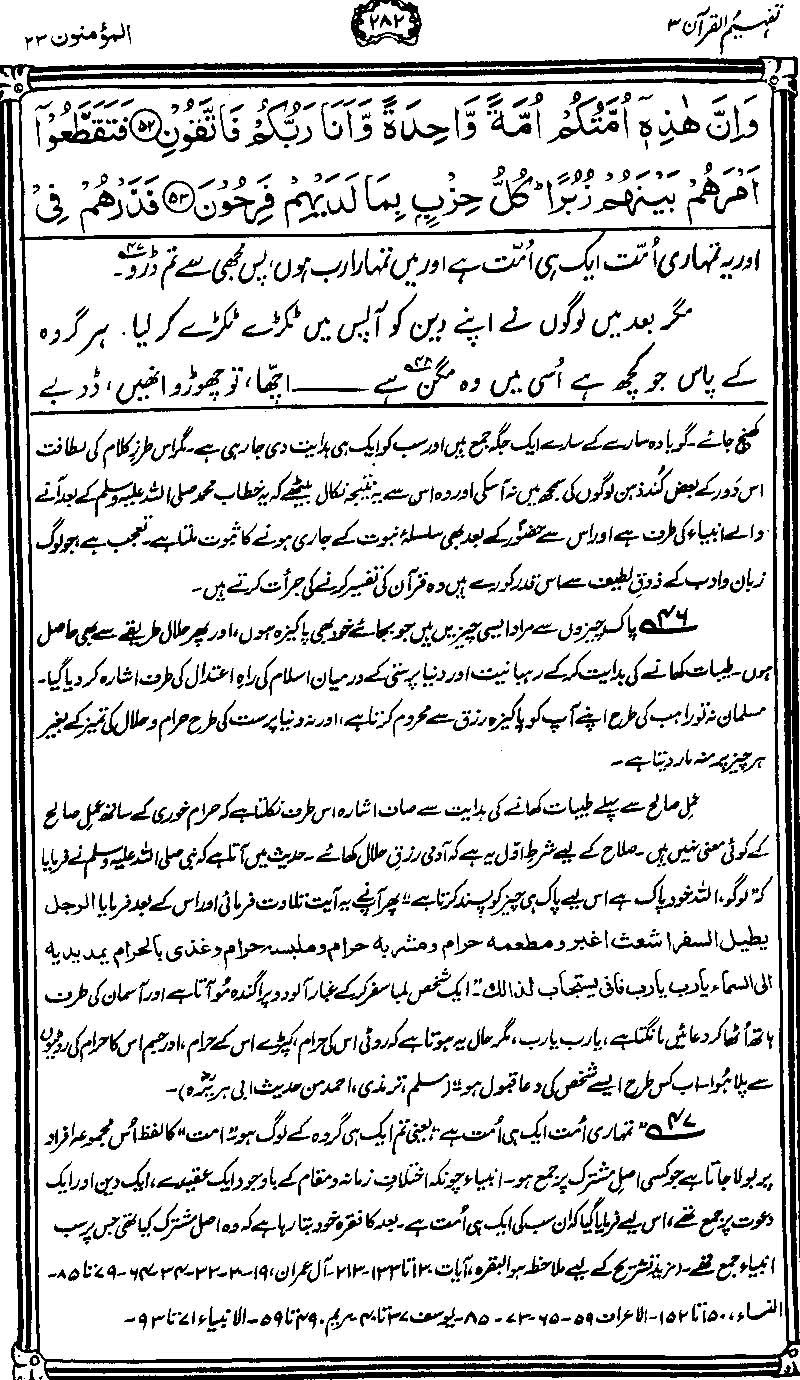 تفہیم القرآن ۳
۲۸۲
المؤمنون ۲۳
وَاِنَّ هٰذِهٖٓ اُمَّتُكُمْ اُمَّةً وَّاحِدَةً وَّاَنَا رَبُّكُمْ فَاتَّقُوْنِ ۵۲ فَتَقَطَّعُوْٓا
اَمْرَهُمْ بَيْنَهُمْ زُبُرًا ؕ كُلُّ حِزْبٍۭ بِمَا لَدَيْهِمْ فَرِحُوْنَ ۵۳ فَذَرْهُمْ فِيْ
اور یہ تمہاری اُمّت ایک ہی اُمّت ہے اور میں تمہارا رب ہوں، پس مجھی سے تم ڈرو۴۷۔
مگر بعد میں لوگوں نے اپنے دین کو آپس میں ٹکڑے ٹکڑے کر لیا۔ ہر گروہ
کے پاس جو کچھ ہے اُسی میں وہ مگن۴۸ ہے ——— اچھا، تو چھوڑو انھیں، ڈوبے
کھنچ جائے۔ گویا وہ سارے کے سارے ایک جگہ جمع ہیں اور سب کو ایک ہی ہدایت دی جا رہی ہے۔ مگر اس طرزِ کلام کی لطافت
اس دَور کے بعض کُند ذہن لوگوں کی سمجھ میں نہ آ سکی اور وہ اس سے یہ نتیجہ نکال بیٹھے کہ یہ خطاب محمد صلی اللہ علیہ وسلم کے بعد آنے
والے انبیاء کی طرف ہے اور اس سے حضورؐ کے بعد بھی سلسلۂ نبوت کے جاری ہونے کا ثبوت ملتا ہے۔ تعجب ہے، جو لوگ
زبان و ادب کے ذوقِ لطیف سے اس قدر کورے ہیں وہ قرآن کی تفسیر کرنے کی جرأت کرتے ہیں۔
۴۶ پاک چیزوں سے مراد ایسی چیزیں ہیں جو بجائے خود بھی پاکیزہ ہوں، اور پھر حلال طریقے سے بھی حاصل
ہوں۔ طیبات کھانے کی ہدایت کر کے رہبانیت اور دنیا پرستی کے درمیان اسلام کی راہِ اعتدال کی طرف اشارہ کر دیا گیا۔
مسلمان نہ تو راہب کی طرح اپنے آپ کو پاکیزہ رزق سے محروم کرتا ہے، اور نہ دنیا پرست کی طرح حرام و حلال کی تمیز کے بغیر
ہر چیز پر منہ مار دیتا ہے۔
عملِ صالح سے پہلے طیبات کھانے کی ہدایت سے صاف اشارہ اس طرف نکلتا ہے کہ حرام خوری کے ساتھ عملِ صالح
کے کوئی معنی نہیں ہیں۔ صلاح کے لیے شرطِ اوّل یہ ہے کہ آدمی رزقِ حلال کھائے۔ حدیث میں آتا ہے کہ نبی صلی اللہ علیہ وسلم نے فرمایا
کہ ”لوگو، اللہ خود پاک ہے اس لیے پاک ہی چیز کو پسند کرتا ہے“ پھر آپؐ نے یہ آیت تلاوت فرمائی اور اس کے بعد فرمایا الرجل
یطیل السفر اشعث اغبر و مطعمه حرام و مشربه حرام و ملبسه حرام و غذی بالحرام یمد یدیه
الی السماء یارب یارب فانی یستجاب لذالک۔ ”ایک شخص لمبا سفر کر کے غبار آلود و پراگندہ مُو آتا ہے اور آسمان کی طرف
ہاتھ اُٹھا کر دعائیں مانگتا ہے، یارب یارب، مگر حال یہ ہوتا ہے کہ روٹی اس کی حرام، کپڑے اس کے حرام، اور جسم اس کا حرام کی روٹیوں
سے پلا ہُوا۔ اب کس طرح ایسے شخص کی دعا قبول ہو“ (مسلم، ترمذی، احمد من حدیث ابی ہریرہؓ)۔
۴۷ ”تمہاری اُمت ایک ہی اُمت ہے“، یعنی تم ایک ہی گروہ کے لوگ ہو۔ ”امت“ کا لفظ اُس مجموعۂ افراد
پر بولا جاتا ہے جو کسی اصلِ مشترک پر جمع ہو۔ انبیاء چونکہ اختلافِ زمانہ و مقام کے باوجود ایک عقیدے، ایک دین اور ایک
دعوت پر جمع تھے، اس لیے فرمایا گیا کہ ان سب کی ایک ہی اُمت ہے۔ بعد کا فقرہ خود بتا رہا ہے کہ وہ اصل مشترک کیا تھی جس پر سب
انبیاء جمع تھے۔ (مزید تشریح کے لیے ملاحظہ ہو البقرہ، آیات ۱۳۰ تا ۱۳۳۔ ۲۱۳۔ آل عمران، ۱۹۔ ۲۰۔ ۳۳۔ ۳۴۔ ۶۴۔ ۷۹ تا ۸۵۔
النساء، ۱۵۰ تا ۱۵۲۔ الاعراف ۵۹۔ ۶۵۔ ۷۳۔ ۸۵۔ یوسف ۳۷ تا ۴۰۔ مریم ۴۹ تا ۵۹۔ الانبیاء ۷۱ تا ۹۳۔